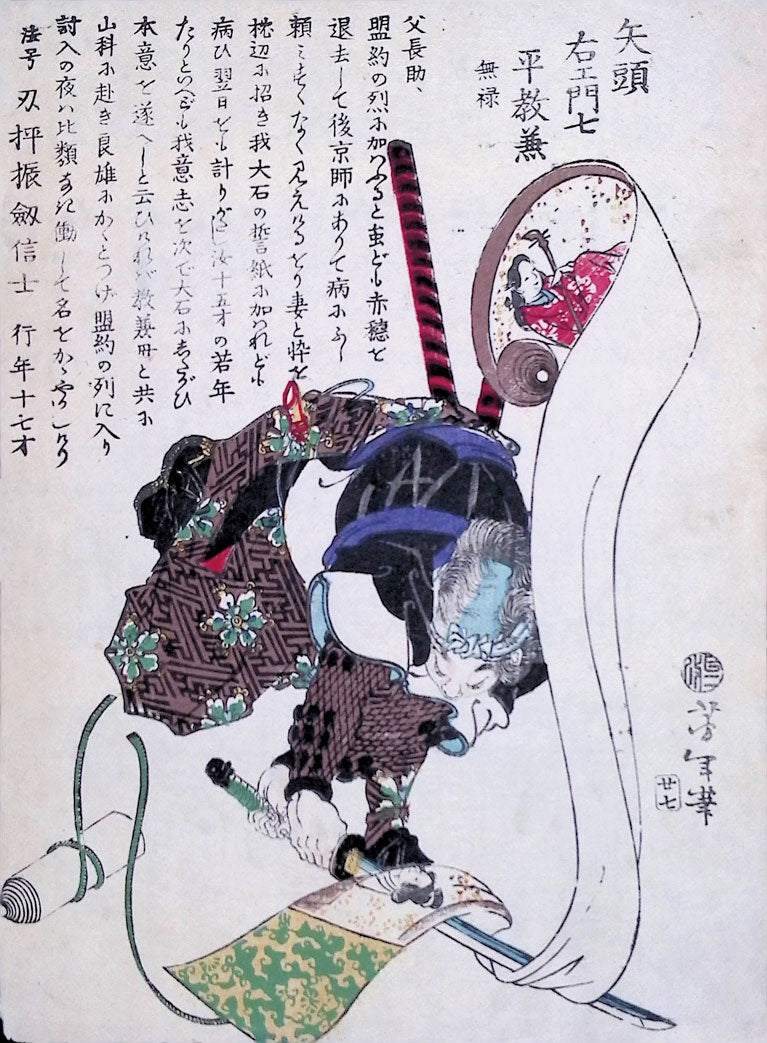 矢頭
右エ門七
平教兼
無禄
父長助、
盟約の烈に加はると虫ども赤穂を
退去して後京師にありて病にふし
頼みすくなく見えけるをり妻と忰を
枕辺に招き我大石の誓紙に加はれども
病ひ翌日をも計りがたし汝十五才の若年
たりといへども我意志を次で大石にしたがひ
本意を遂べしと云ひければ教兼母と共に
山科に赴き良雄にかくとつげ盟約の列に入り
討入の夜は比類なき働して名をかゞやかしけり
法号 刃拝振劔信士 行年十七才
芳年筆
廿七